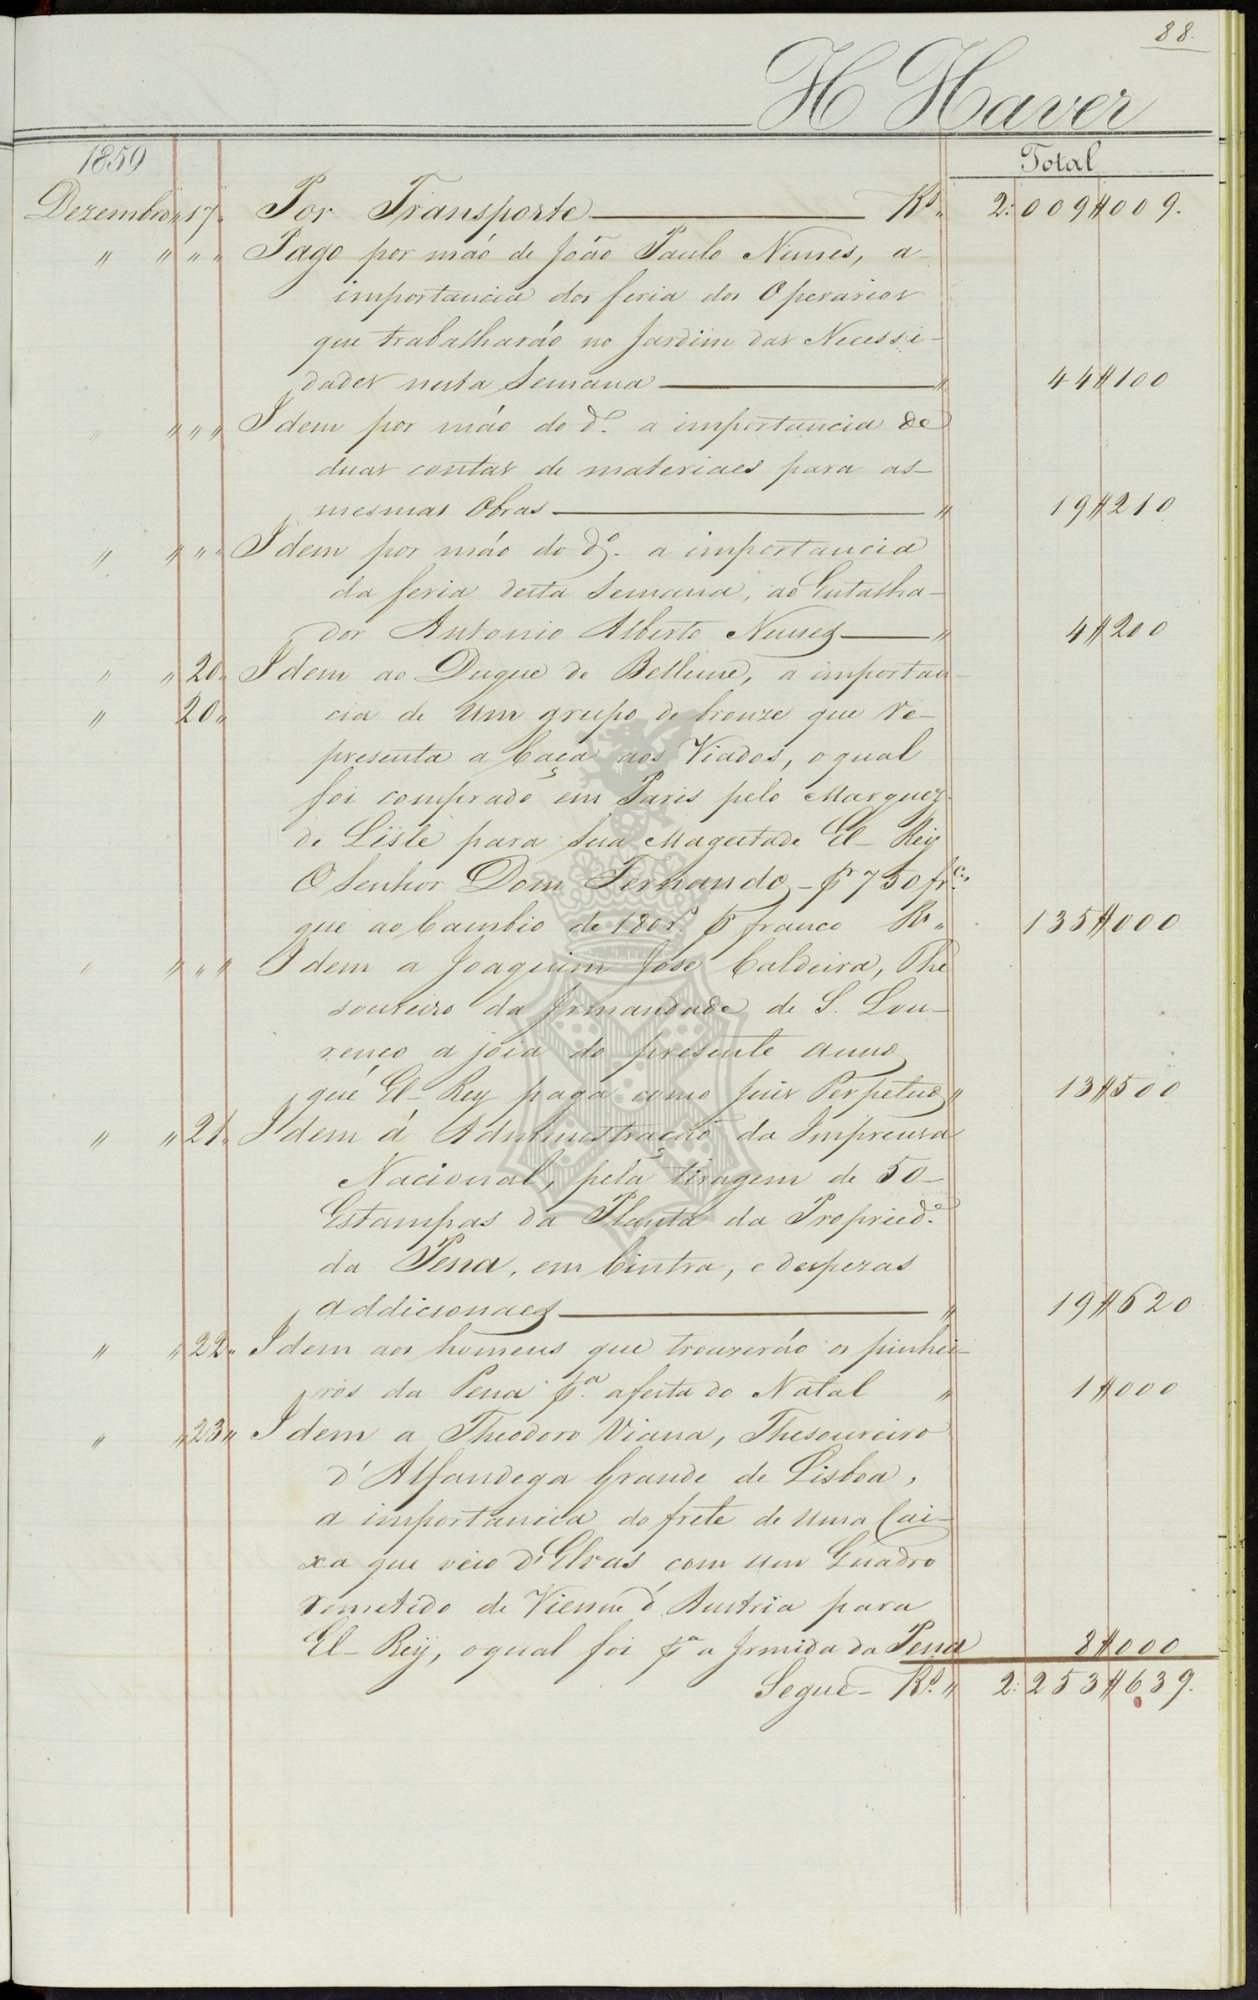 88.
H Haver
1859 Total
Dezembro " 17 " Por Transporte — Rs " 2:009$009.
" " " " Pago por mão de João Paulo Nunes, a
importancia das feria dos Operarios
que trabalharão no Jardim das Necessi-
dades nesta Semana — " 44$100
" " " " Idem por mão do do. a importancia de
duas contas de materiaes para as
mesmas Obras — " 19$210
" " " " Idem por mão do do. a importancia
da feria desta Semana, ao Entalha-
dor Antonio Alberto Nunes — " 4$200
" " 20 " Idem ao Duque de Bellune, a importan-
" 20 " cia de um grupo de bronze que re-
presenta a Caça aos Viados, o qual
foi comprado em Paris pelo Marquez
de Lisle para Sua Magestade El-Rey
O Senhor Dom Fernando - pr 750 frcs
que ao Cambio de 180 rs. p franco Rs " 135$000
" " " " Idem a Joaquim José Caldeira, The
soureiro da Irmandade de S. Lou-
renço a joia do presente anno
que El-Rey paga como Juis Perpetuo " 13$500
" " 21 " Idem á Administração da Imprensa
Nacional, pela tiragem de 50-
Estampas da Planta da Propried.e
da Pena, em Cintra, e despezas
addicionaes — " 19$620
" " 22 " Idem aos homens que trouxerão os pinhei-
ros da Pena pa. a festa do Natal " 1$000
" " 23 " Idem a Theodoro Viana, Thesoureiro
d'Alfandega Grande de Lisboa,
a importancia do frete de uma Cai-
xa que veio d'Elvas com um Quadro
remetido de Vienne d'Austria para
El-Rey, o qual foi pa a Irmida da Pena 8$000
Segue - Rs. " 2:253$639.